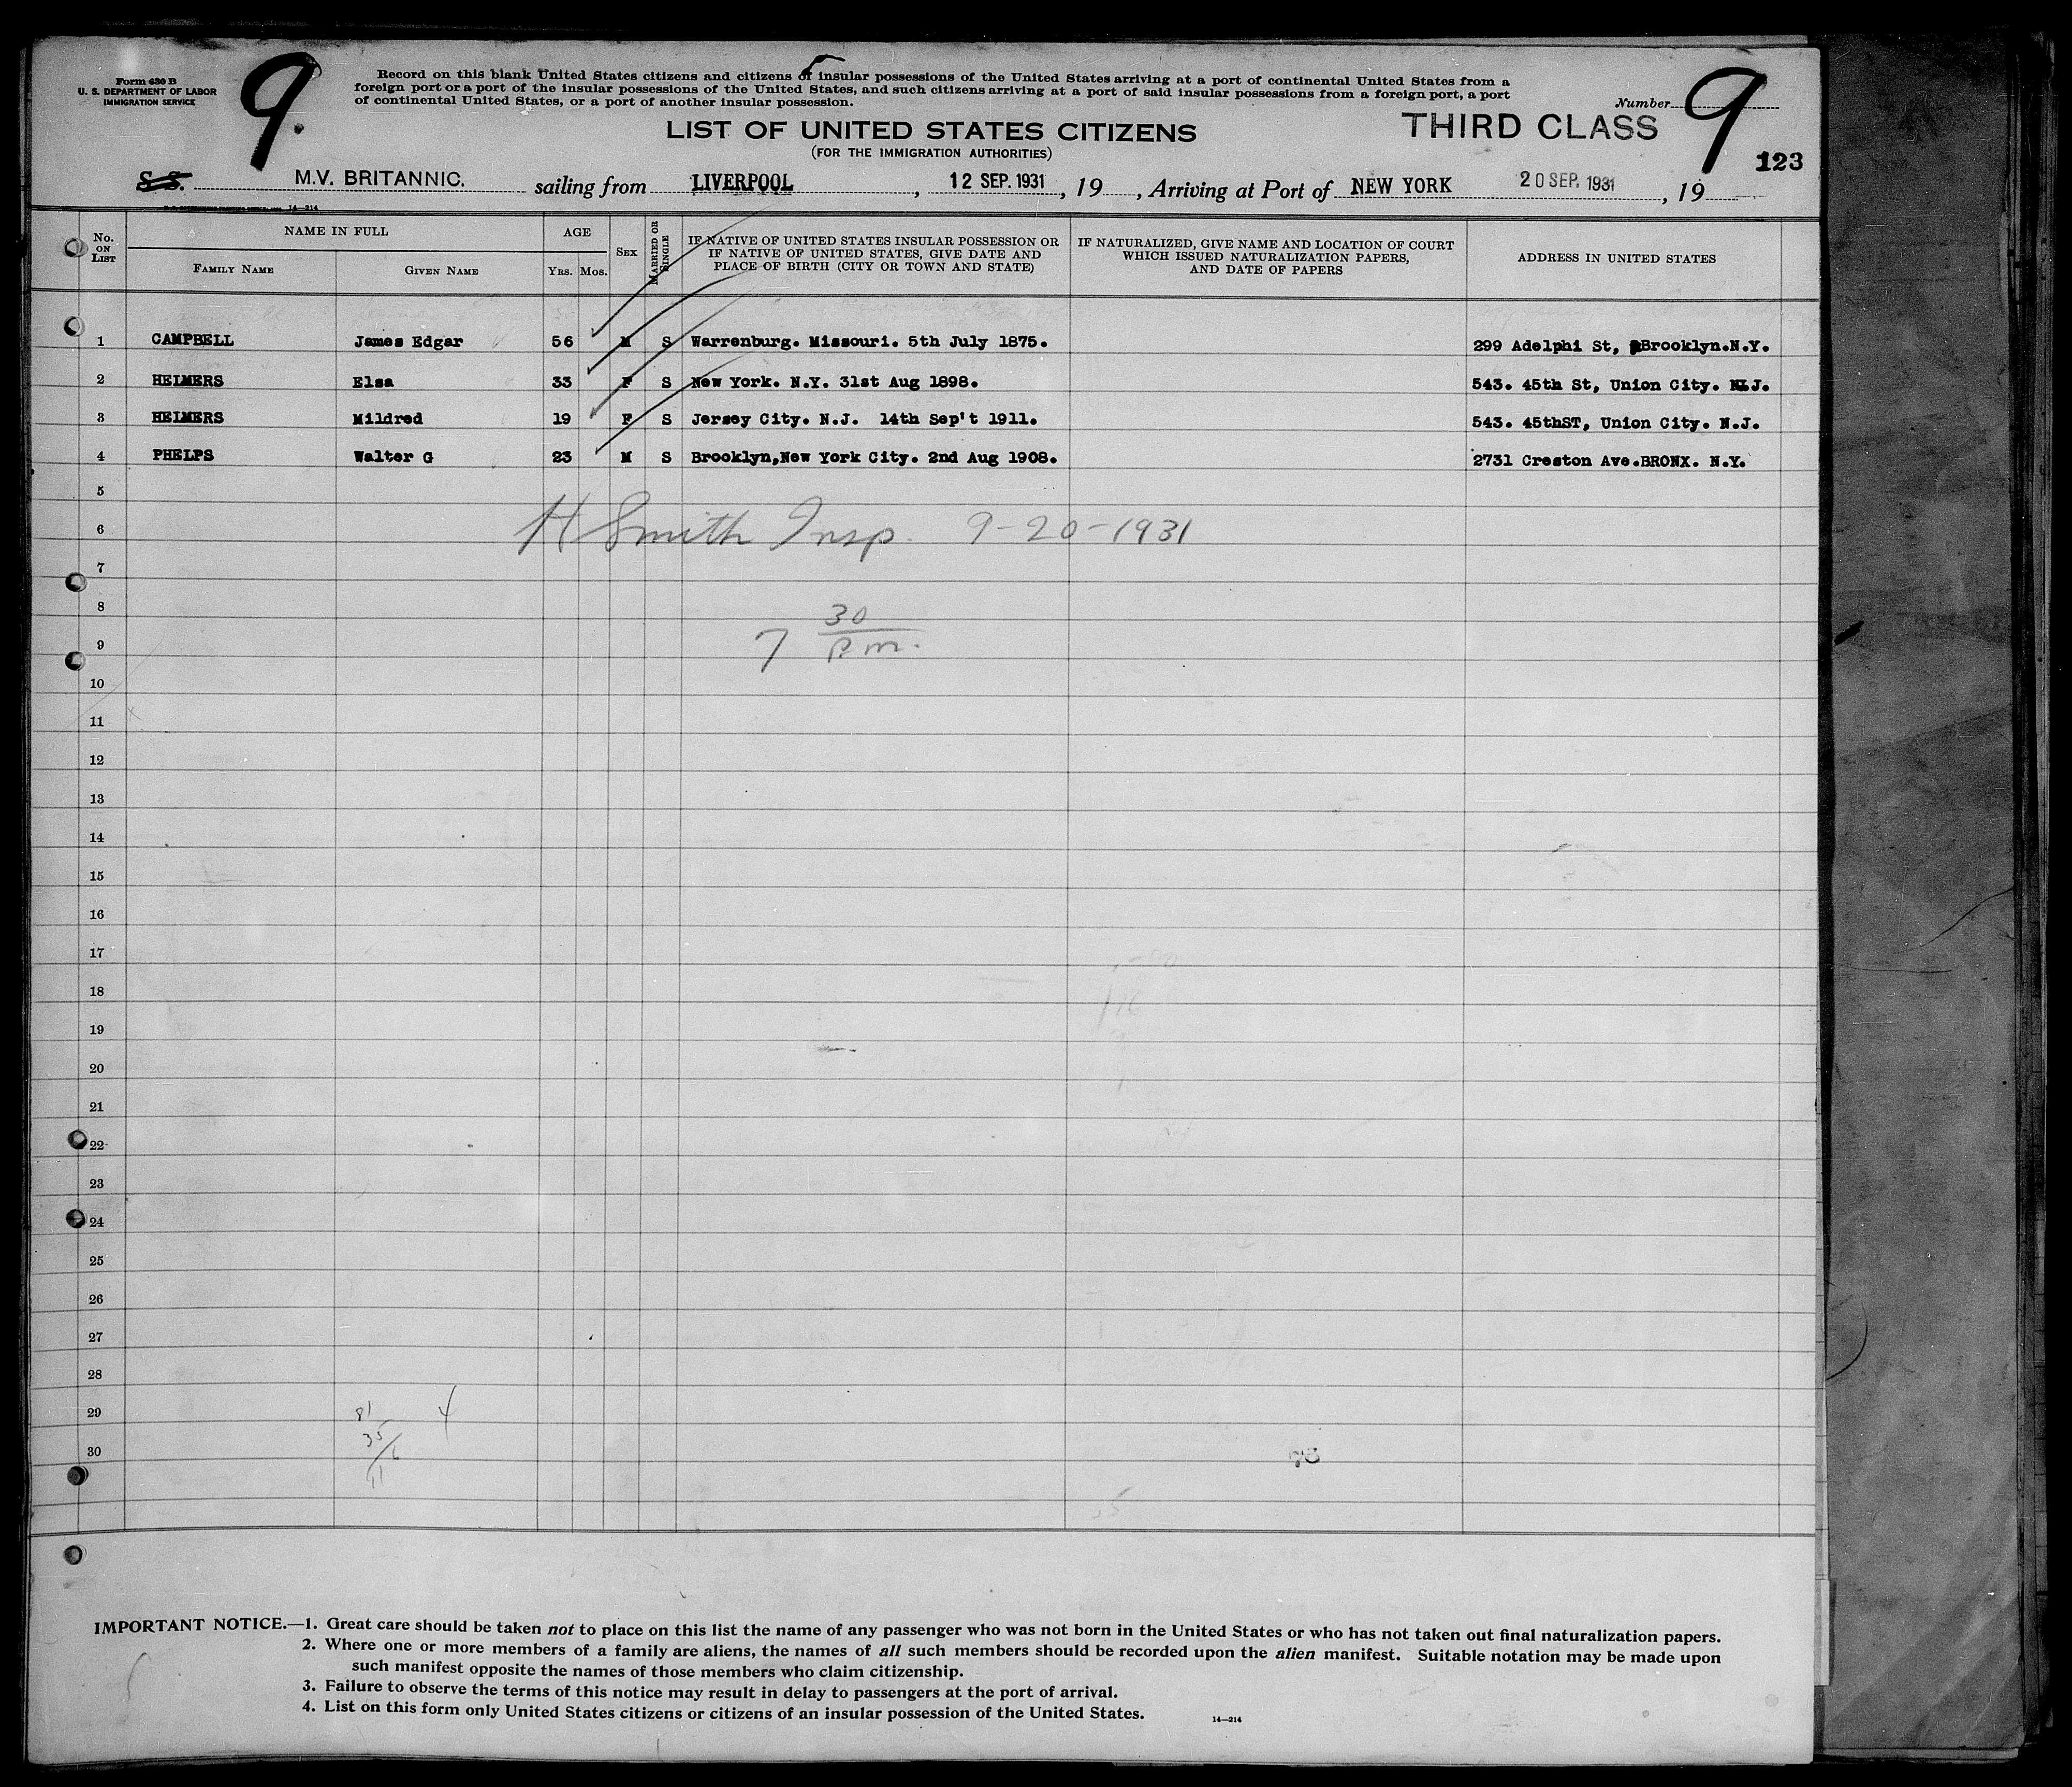 Form 630 B
U. S. DEPARTMENT OF LABOR
IMMIGRATION SERVICE
9.
5
Record on this blank United States citizens and citizens of insular possessions of the United States arriving at a port of continental United States from a
foreign port or a port of the insular possessions of the United States, and such citizens arriving at a port of said insular possessions from a foreign port, a port
of continental United States, or a port of another insular possession.
Number 9
LIST OF UNITED STATES CITIZENS
THIRD CLASS
(FOR THE IMMIGRATION AUTHORITIES)
123
S. S. M.V. BRITANNIC. sailing from LIVERPOOL, 12 SEP. 1931, 19, Arriving at Port of NEW YORK 20 SEP. 1931, 19
14—214
No. ON LIST
NAME IN FULL
FAMILY NAME
GIVEN NAME
AGE
YRS. MOS.
SEX
MARRIED OR SINGLE
IF NATIVE OF UNITED STATES INSULAR POSSESSION OR
IF NATIVE OF UNITED STATES, GIVE DATE AND
PLACE OF BIRTH (CITY OR TOWN AND STATE)
IF NATURALIZED, GIVE NAME AND LOCATION OF COURT
WHICH ISSUED NATURALIZATION PAPERS,
AND DATE OF PAPERS
ADDRESS IN UNITED STATES
1 CAMPBELL James Edgar 56 M S Warrenburg. Missouri. 5th July 1875. 299 Adelphi St, Brooklyn.N.Y.
2 HEIMERS Elsa 33 F S New York. N.Y. 31st Aug 1898. 543. 45th St, Union City. N.J.
3 HEIMERS Mildred 19 F S Jersey City. N.J. 14th Sep't 1911. 543. 45thST, Union City. N.J.
4 PHELPS Walter G 23 M S Brooklyn,New York City. 2nd Aug 1908. 2731 Creston Ave.BRONX. N.Y.
5
6 H Smith Insp. 9-20-1931
7
8 30
9 7 P.m.
10
11
12
13
14
15
16
17
18
19
20
21
22
23
24
25
26
27
28
29 81 4
30 35/6
11
IMPORTANT NOTICE.—1. Great care should be taken not to place on this list the name of any passenger who was not born in the United States or who has not taken out final naturalization papers.
2. Where one or more members of a family are aliens, the names of all such members should be recorded upon the alien manifest. Suitable notation may be made upon
such manifest opposite the names of those members who claim citizenship.
3. Failure to observe the terms of this notice may result in delay to passengers at the port of arrival.
4. List on this form only United States citizens or citizens of an insular possession of the United States.
14—214